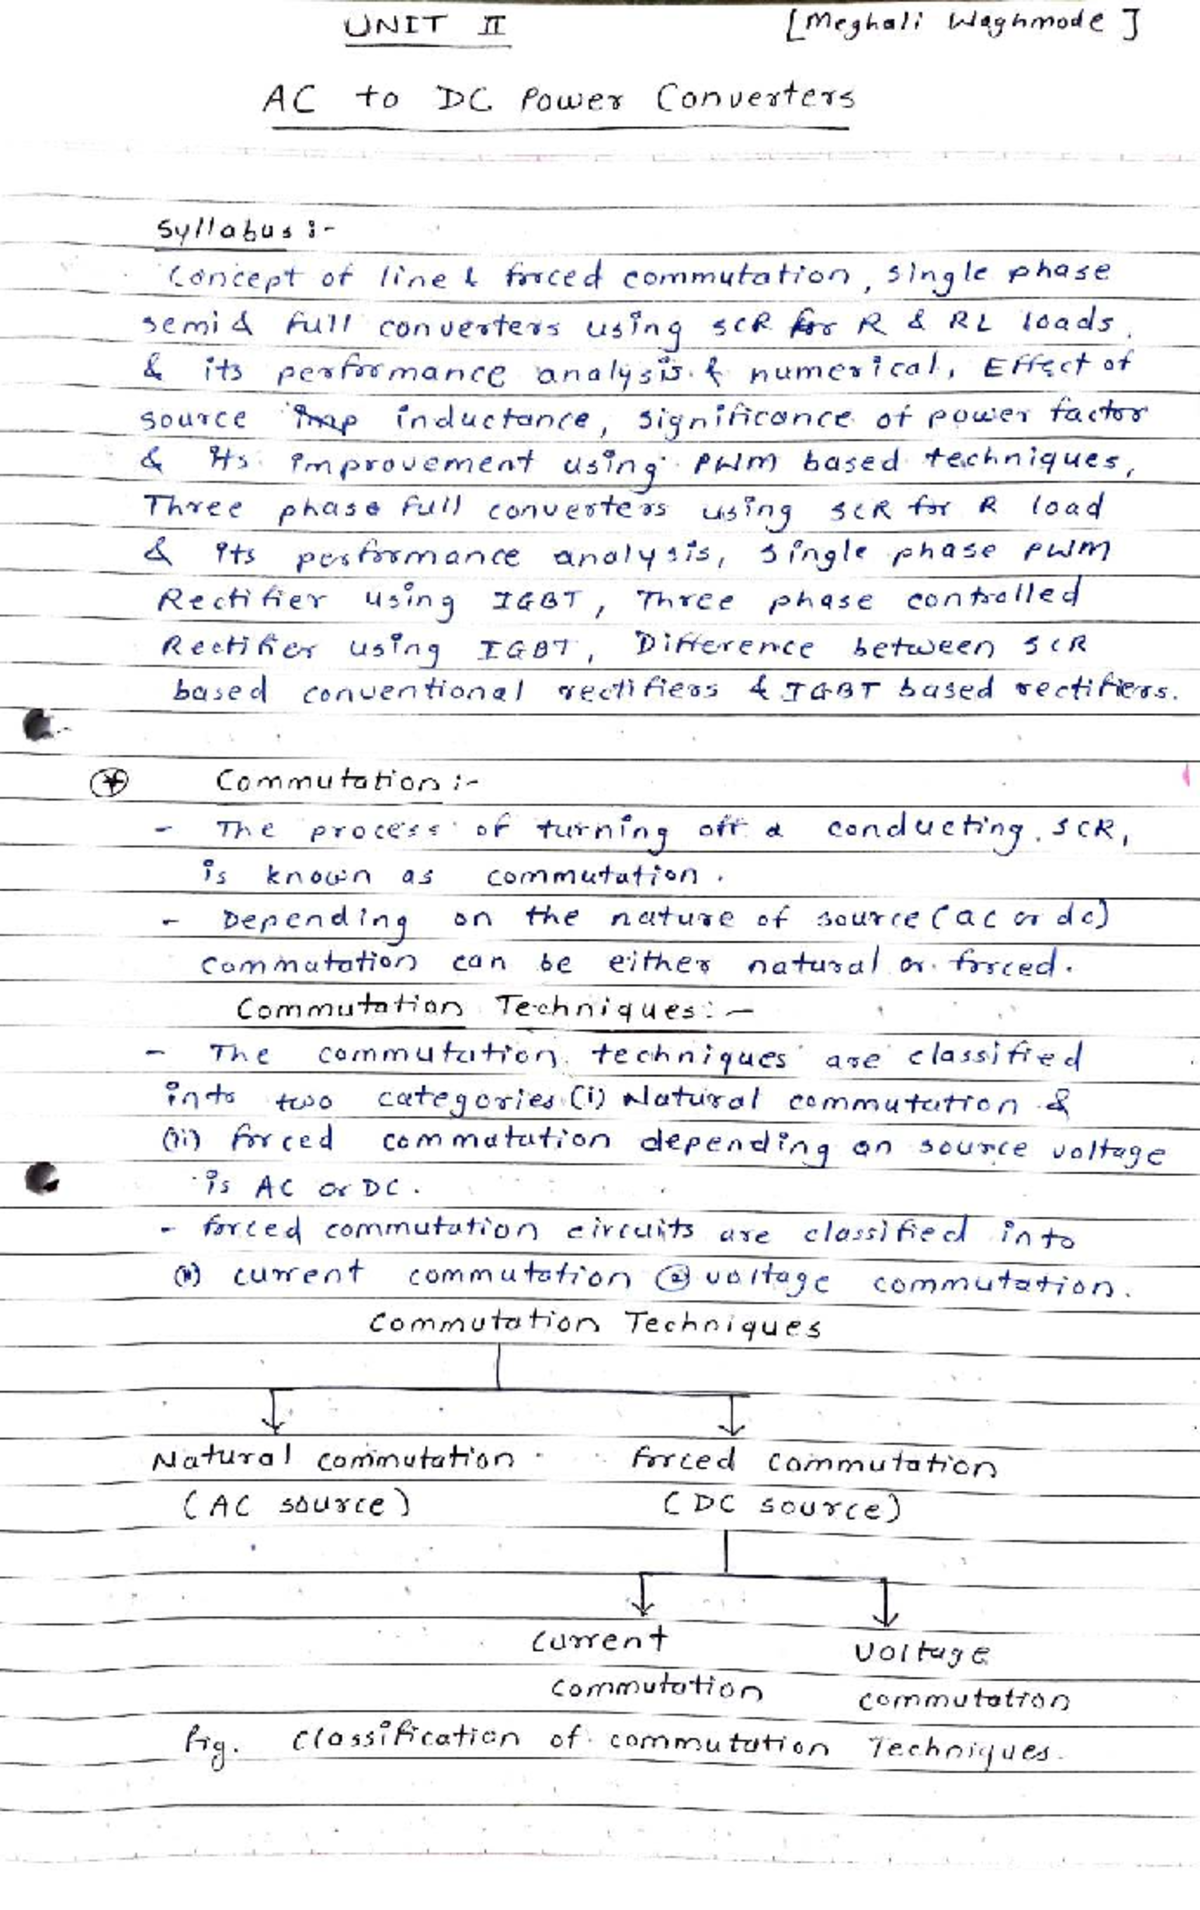 UNIT II [Meghali Waghmode]
AC to DC Power Converters
Syllabus :-
Concept of line & forced commutation, single phase
semi & full converters using SCR for R & RL loads.
& its performance analysis & numerical, Effect of
source inductance, significance of power factor
& its improvement using PWM based techniques,
Three phase full converters using SCR for R load
& its performance analysis, single phase PWM
Rectifier using IGBT, Three phase controlled
Rectifier using IGBT, Difference between SCR
based conventional rectifiers & IGBT based rectifiers.
Commutation :-
- The process of turning off a conducting SCR,
is known as commutation.
- Depending on the nature of source (ac or dc)
commutation can be either natural or forced.
Commutation Techniques :-
- The commutation techniques are classified
into two categories (i) Natural commutation &
(ii) forced commutation depending on source voltage
is AC or DC.
- forced commutation circuits are classified into
current commutation ② voltage commutation.
Commutation Techniques
Natural commutation forced commutation
(AC source) (DC source)
Current Voltage
commutation commutation
fig. Classification of commutation Techniques.